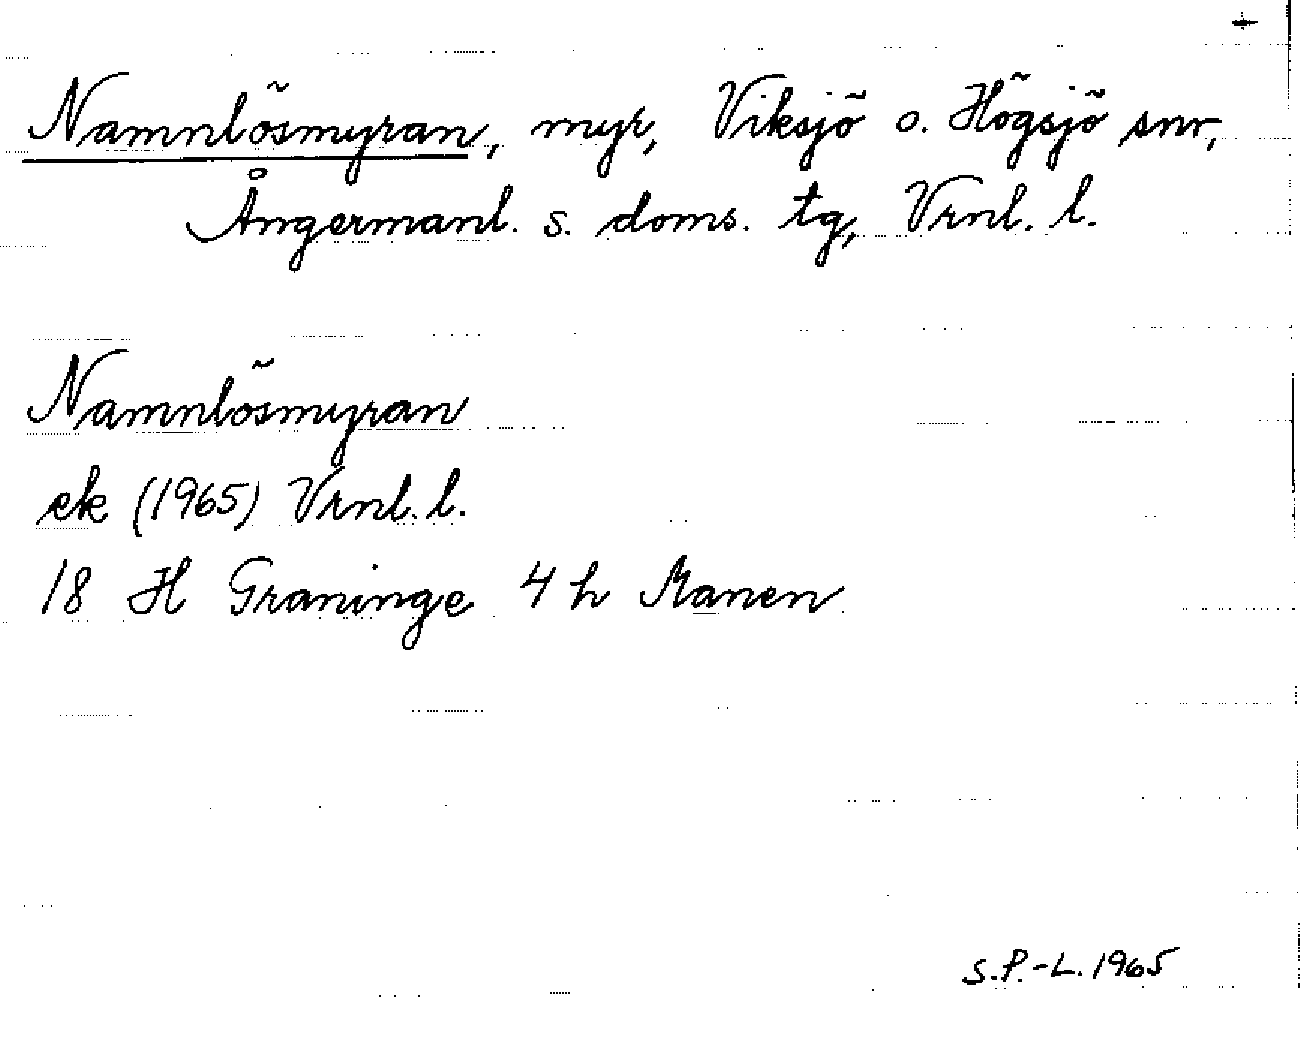 Namnlösmyran, myr, Viksjö o. Högsjö snr,
Ångermanl. s. doms. tg, Vrnl. l.
Namnlösmyran
ek (1965) Vrnl. l.
18 H Graninge 4 h Manen
S.P.-L. 1965